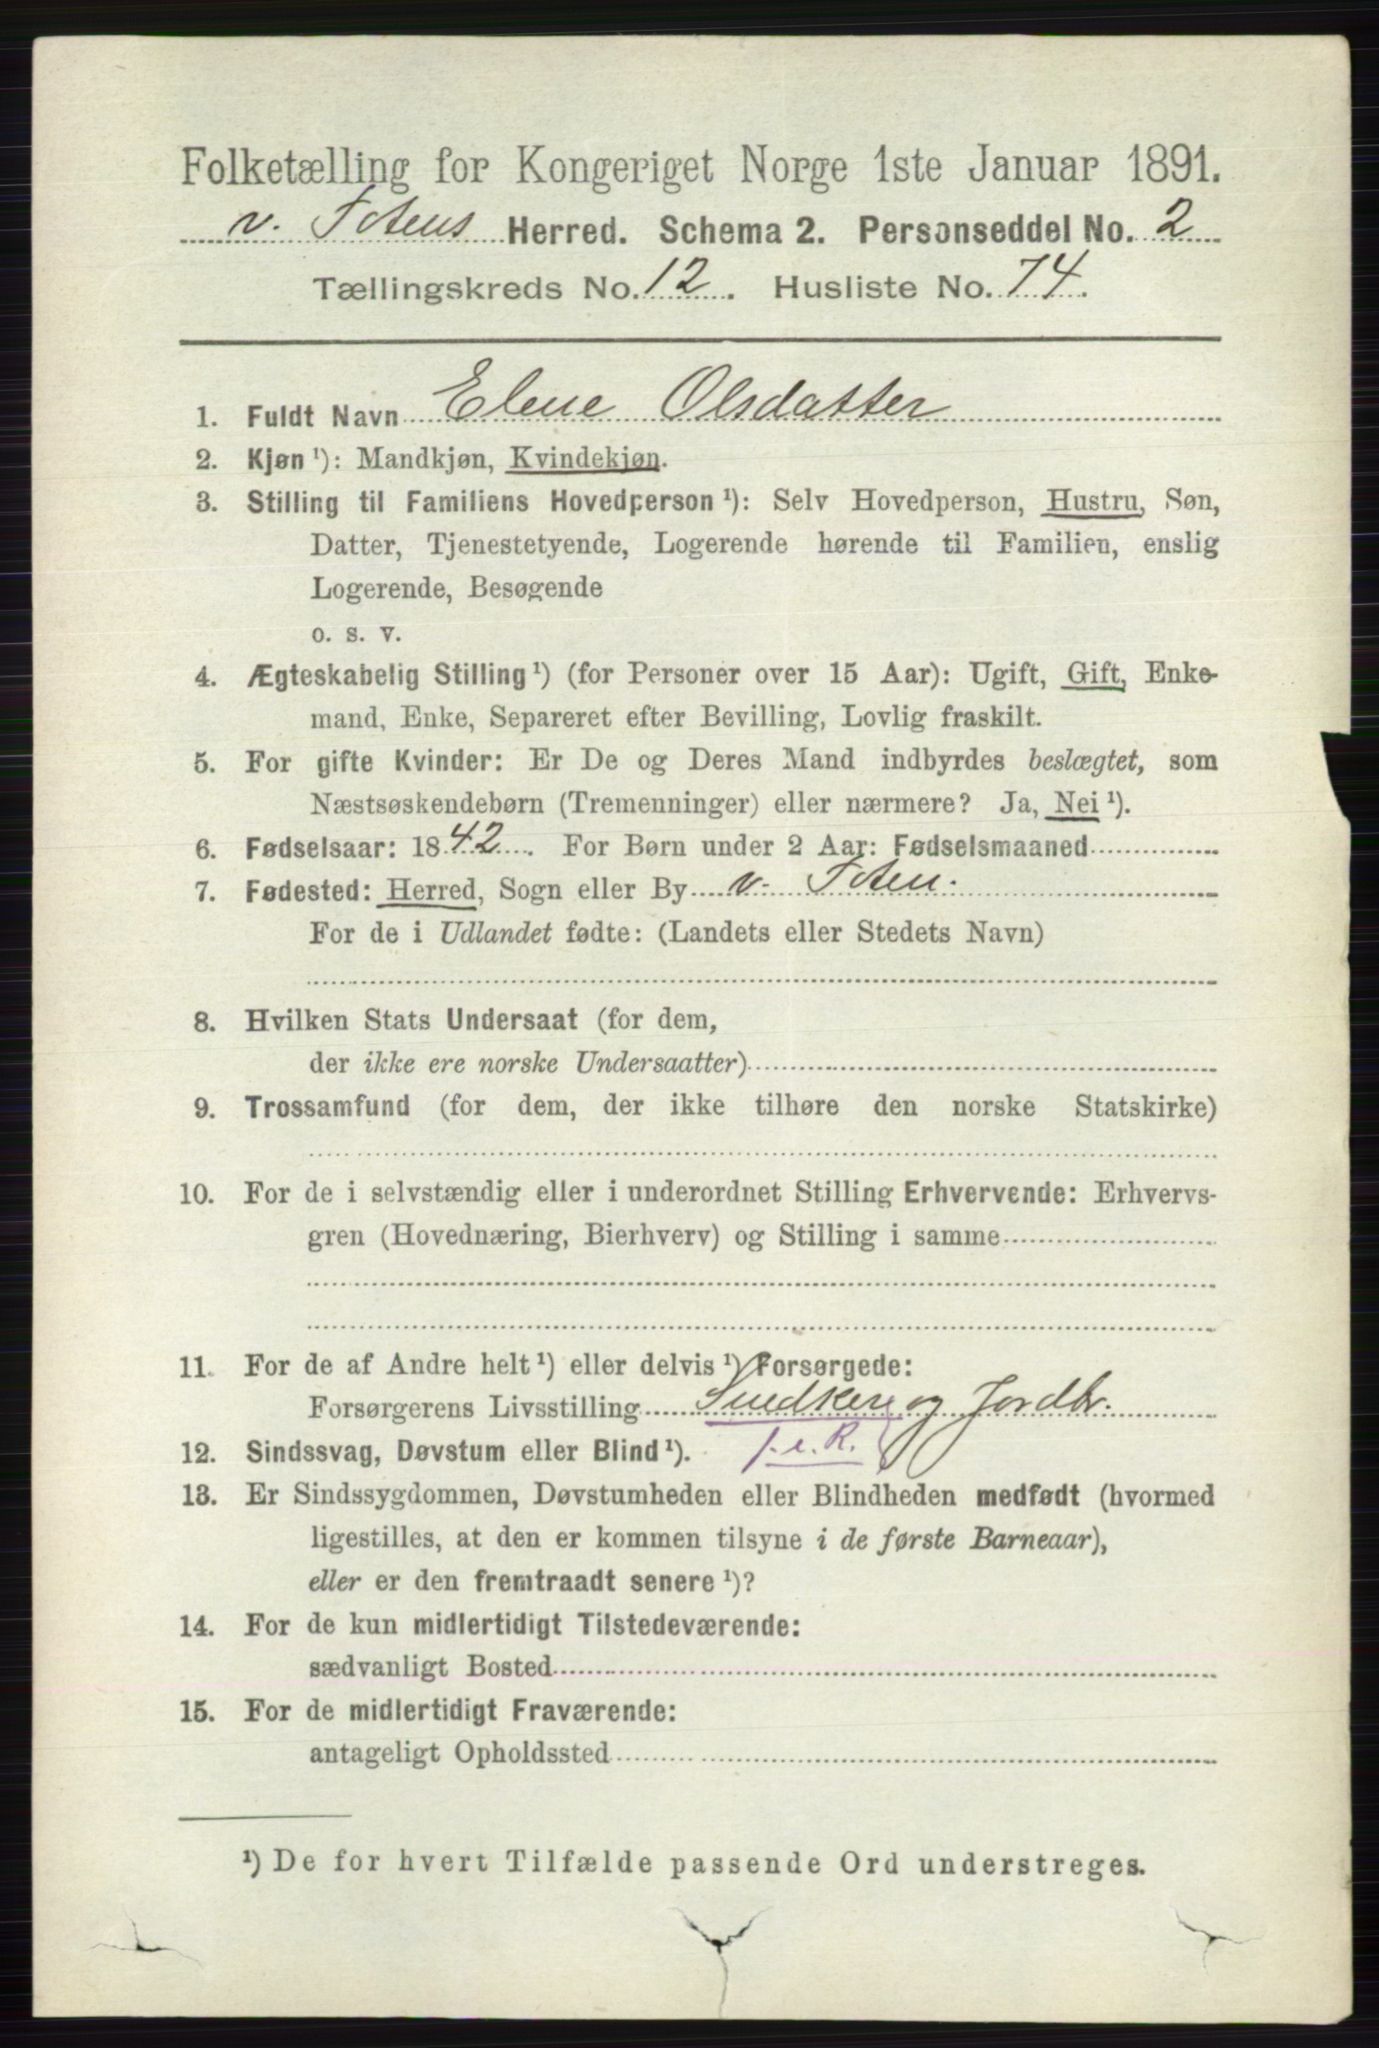 Folketælling for Kongeriget Norge 1ste Januar 1891.
v. Totens Herred. Schema 2. Personseddel No. 2
Tællingskreds No. 12. Husliste No. 74.
1. Fuldt Navn Elene Olsdatter
2. Kjøn ¹): Mandkjøn, Kvindekjøn.
3. Stilling til Familiens Hovedperson ¹): Selv Hovedperson, Hustru, Søn,
Datter, Tjenestetyende, Logerende hørende til Familien, enslig
Logerende, Besøgende
o. s. v.
4. Ægteskabelig Stilling ¹) (for Personer over 15 Aar): Ugift, Gift, Enke-
mand, Enke, Separeret efter Bevilling, Lovlig fraskilt.
5. For gifte Kvinder: Er De og Deres Mand indbyrdes beslægtet, som
Næstsøskendebørn (Tremenninger) eller nærmere? Ja, Nei ¹).
6. Fødselsaar: 1842. For Børn under 2 Aar: Fødselsmaaned
7. Fødested: Herred, Sogn eller By v. Toten.
For de i Udlandet fødte: (Landets eller Stedets Navn)
8. Hvilken Stats Undersaat (for dem,
der ikke ere norske Undersaatter)
9. Trossamfund (for dem, der ikke tilhøre den norske Statskirke)
10. For de i selvstændig eller i underordnet Stilling Erhvervende: Erhvervs-
gren (Hovednæring, Bierhverv) og Stilling i samme
11. For de af Andre helt ¹) eller delvis ¹) Forsørgede:
Forsørgerens Livsstilling Snedker og Jordbr.
12. Sindssvag, Døvstum eller Blind ¹).
13. Er Sindssygdommen, Døvstumheden eller Blindheden medfødt (hvormed
ligestilles, at den er kommen tilsyne i de første Barneaar),
eller er den fremtraadt senere ¹)?
14. For de kun midlertidigt Tilstedeværende:
sædvanligt Bosted
15. For de midlertidigt Fraværende:
antageligt Opholdssted
¹) De for hvert Tilfælde passende Ord understreges.